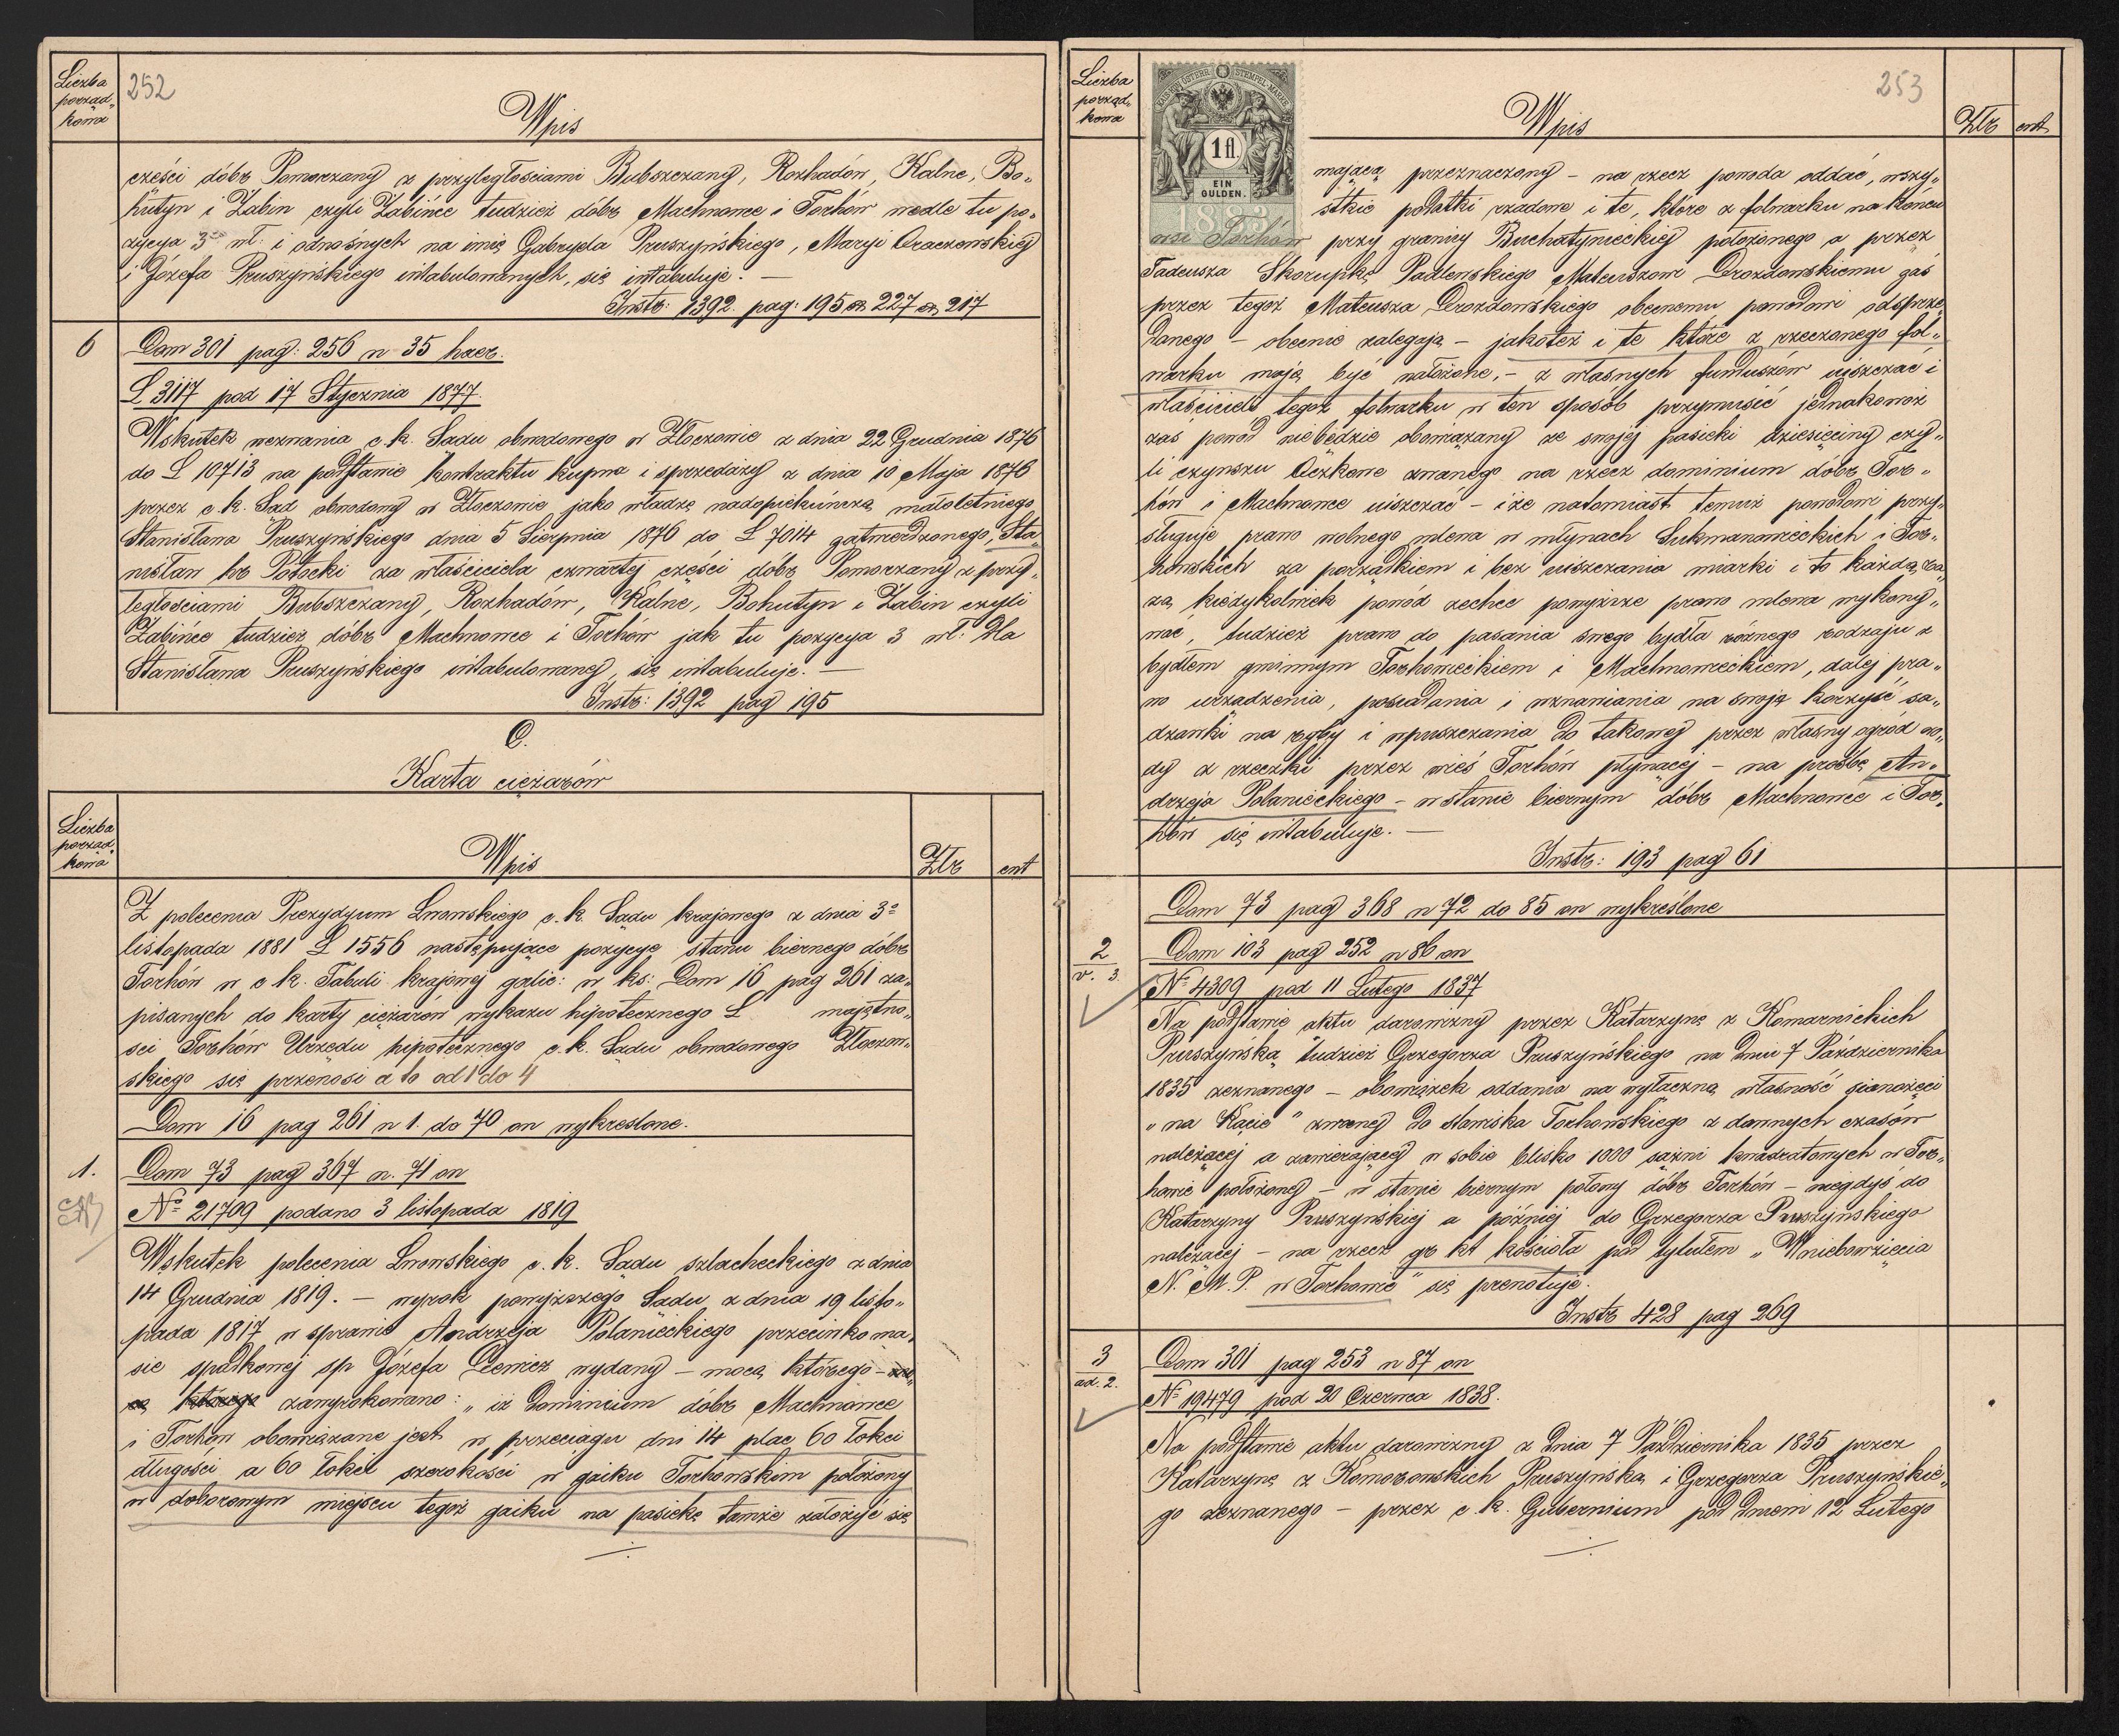 Liczba
porząd„
kowa
252
Wpis
części dóbr Pomorzany z przyległościami Bubszczany, Rozhadów, Kalne, Bo„
hutyn i Żabin czyli Żabińce tudzież dóbr Machnowce i Torhów wedle tu po„
zycya 3 wł: i odnośnych na imię Gabryela Pruszyńskiego, Maryi Oraczewskiej
i Józefa Pruszyńskiego intabulowanych, się intabuluje. —
Instr: 1392. pag: 195 227 217
6
Dom 301 pag: 256 n 35 haer.
L 3117 pod 17 Stycznia 1877.
Wskutek wezwania c. k. Sądu obwodowego w Złoczowie z dnia 22 Grudnia 1876
do L 10713 na podstawie kontraktu kupna i sprzedaży z dnia 10 Maja 1876
przez c. k. Sąd obwodowy w Złoczowie jako władzę nadopiekuńczą małoletniego
Stanisława Pruszyńskiego dnia 5 Sierpnia 1876 do L 7014 zatwierdzonego, Sta„
nisław hr Potocki za właściciela czwartej części dóbr Pomorzany z przy„
ległościami Bubszczany, Rozhadów, Kalne, Bohutyn i Żabin czyli
Żabińce tudzież dóbr Machnowce i Torhów jak tu pozycya 3 wł: dla
Stanisława Pruszyńskiego intabulowanej, się intabuluje. —
Instr: 1392 pag 195
C.
Karta ciężarów
Liczba
porząd„
kowa
Wpis
Złr
cnt
Z polecenia Prezydyum Lwowskiego c. k. Sądu krajowego z dnia 3
listopada 1881 L 1556 następujące pozycye stanu biernego dóbr
Torhów w c k. Tabuli krajowej galic: w ks: Dom 16 pag 261 za„
pisanych do karty ciężarów wykazu hipotecznego L majętno„
sci Torhów Urzędu hipotecznego c. k. Sądu obwodowego Złoczow„
skiego się przenosi a to od 1 do 4
Dom 16 pag 261 n 1. do 70 on wykreslone.
1.
Dom 73 pag 367 n. 71 on
№ 21709 podano 3 listopada 1819
Wskutek polecenia Lwowskiego c. k. Sądu szlacheckiego z dnia
14 Grudnia 1819. — wyrok powyższego Sądu z dnia 19 listo„
pada 1817 w sprawie Andrzeja Polanieckiego przeciwko ma„
sie spadkowej sp Józefa Lewicz wydany — mocą którego —
któregο zawyrokowano: „iż Dominium dóbr Machnowce
i Torhów obowiązane jest w przeciągu dni 14 plac 60 łokci
długości a 60 łokci szerokości w gaiku Torhowskim położony
w doborowym miejscu tegoż gaiku na pasiekę tamże założyć się
Liczba
porząd„
kowa
KAIS. KÖN. ÖSTERR. STEMPEL-MARKE
1 fl
EIN
GULDEN.
1883
Wpis
253
Złr
cnt
mającą przeznaczony — na rzecz powoda oddać, wszy„
stkie podatki rządowe i te, które z folwarku na końcu
wsi Torhów przy granicy Buchatynieckiej położonego a przez
Tadeusza Skorupkę Padlewskiego Mateuszowi Drozdowskiemu zaś
przez tegoż Mateusza Drozdowskiego obecnemu powodowi odsprze„
danego — obecnie zalegają — jakoteż i te które z rzeczonego fol„
warku mają być nałożone, — z własnych funduszów uiszczać i
właściciela tegoż folwarku w ten sposób przymusić jednakowoż
zaś powód niebędzie obowiązany ze swojej pasieki dziesięciny czy„
li czynszu Oczkowe zwanego na rzecz dominium dóbr Tor„
hów i Machnowce uiszczać — iże natomiast temuż powodowi przy„
sługuje prawo wolnego mlewa w młynach Sukmanowieckich i Tor„
howskich za porządkiem i bez uiszczania miarki i to każdą ra„
zą kiedykolwiek powód zechce powyższe prawo mlewa wykony„
wać, tudzież prawo do pasania swego bydła różnego rodzaju z
bydłem gminnym Torhowieckiem i Machnowieckiem, dalej pra„
wo urządzenia, posiadania i wznawiania na swoją korzyść sa„
dzawki na ryby i wpuszczania do takowej przez własny ogród wo„
dy z rzeczki przez wieś Torhów płynącej — na prośbę An„
drzeja Polanieckiego — w stanie biernym dóbr Machnowce i Tor„
hów się intabuluje. —
Instr: 193 pag 61
Dom 73 pag 368 n 72 do 85 on wykreślone
2
v. 3
Dom 103 pag 252 n 86 on
№ 4309 pod 11 Lutego 1837
Na podstawie aktu darowizny przez Katarzynę z Komarnickich
Pruszyńską tudzież Grzegorza Pruszyńskiego na dniu 7 Października
1835 zeznanego — obowiązek oddania na wyłączną własność sianożęci
„na Kącie" zwanej do stawiska Torhowskiego z dawnych czasów
należącej a zawierającej w sobie blisko 1000 sążni kwadratowych w Tor„
howie położonej — w stanie biernym połowy dóbr Torhów — niegdyś do
Katarzyny Pruszyńskiej a później do Grzegorza Pruszyńskiego
należącej — na rzecz gr kt kościoła pod tytułem „Wniebowzięcia
N. M. P. w Torhowie" się prenotuje.
Instr 428 pag 269
3
ad. 2.
Dom 301 pag 253 n 87 on
№ 19479 pod 20 Czerwca 1838.
Na podstawie aktu darowizny z dnia 7 Października 1835 przez
Katarzynę z Komorowskich Pruszyńską i Grzegorza Pruszyńskie„
go zeznanego — przez c. k. Gubernium pod dniem 12 Lutego